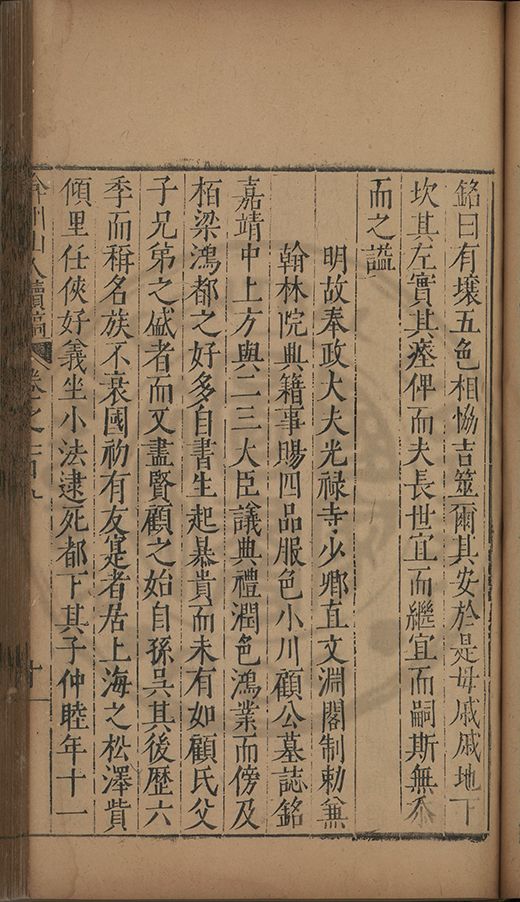 銘曰有壤五色相恊吉筮爾其安於是毋戚戚地下
坎其左實其㾭俾而夫長世宜而繼宜而嗣斯無忝
而之謚
明故奉政大夫光禄寺少卿直文淵閣制勅兼
翰林院典籍事賜四品服色小川顧公墓誌銘
嘉靖中上方與二三大臣議典禮潤色鴻業而傍及
栢梁鴻都之好多自書生起暴貴而未有如顧氏父
子兄弟之盛者而又盡賢顧之始自孫吳其後歴六
季而稱名族不衰國初有友寔者居上海之松澤貲
傾里任俠好義坐小法逮死都下其子仲睦年十一
弇州山人續稿 卷之一百